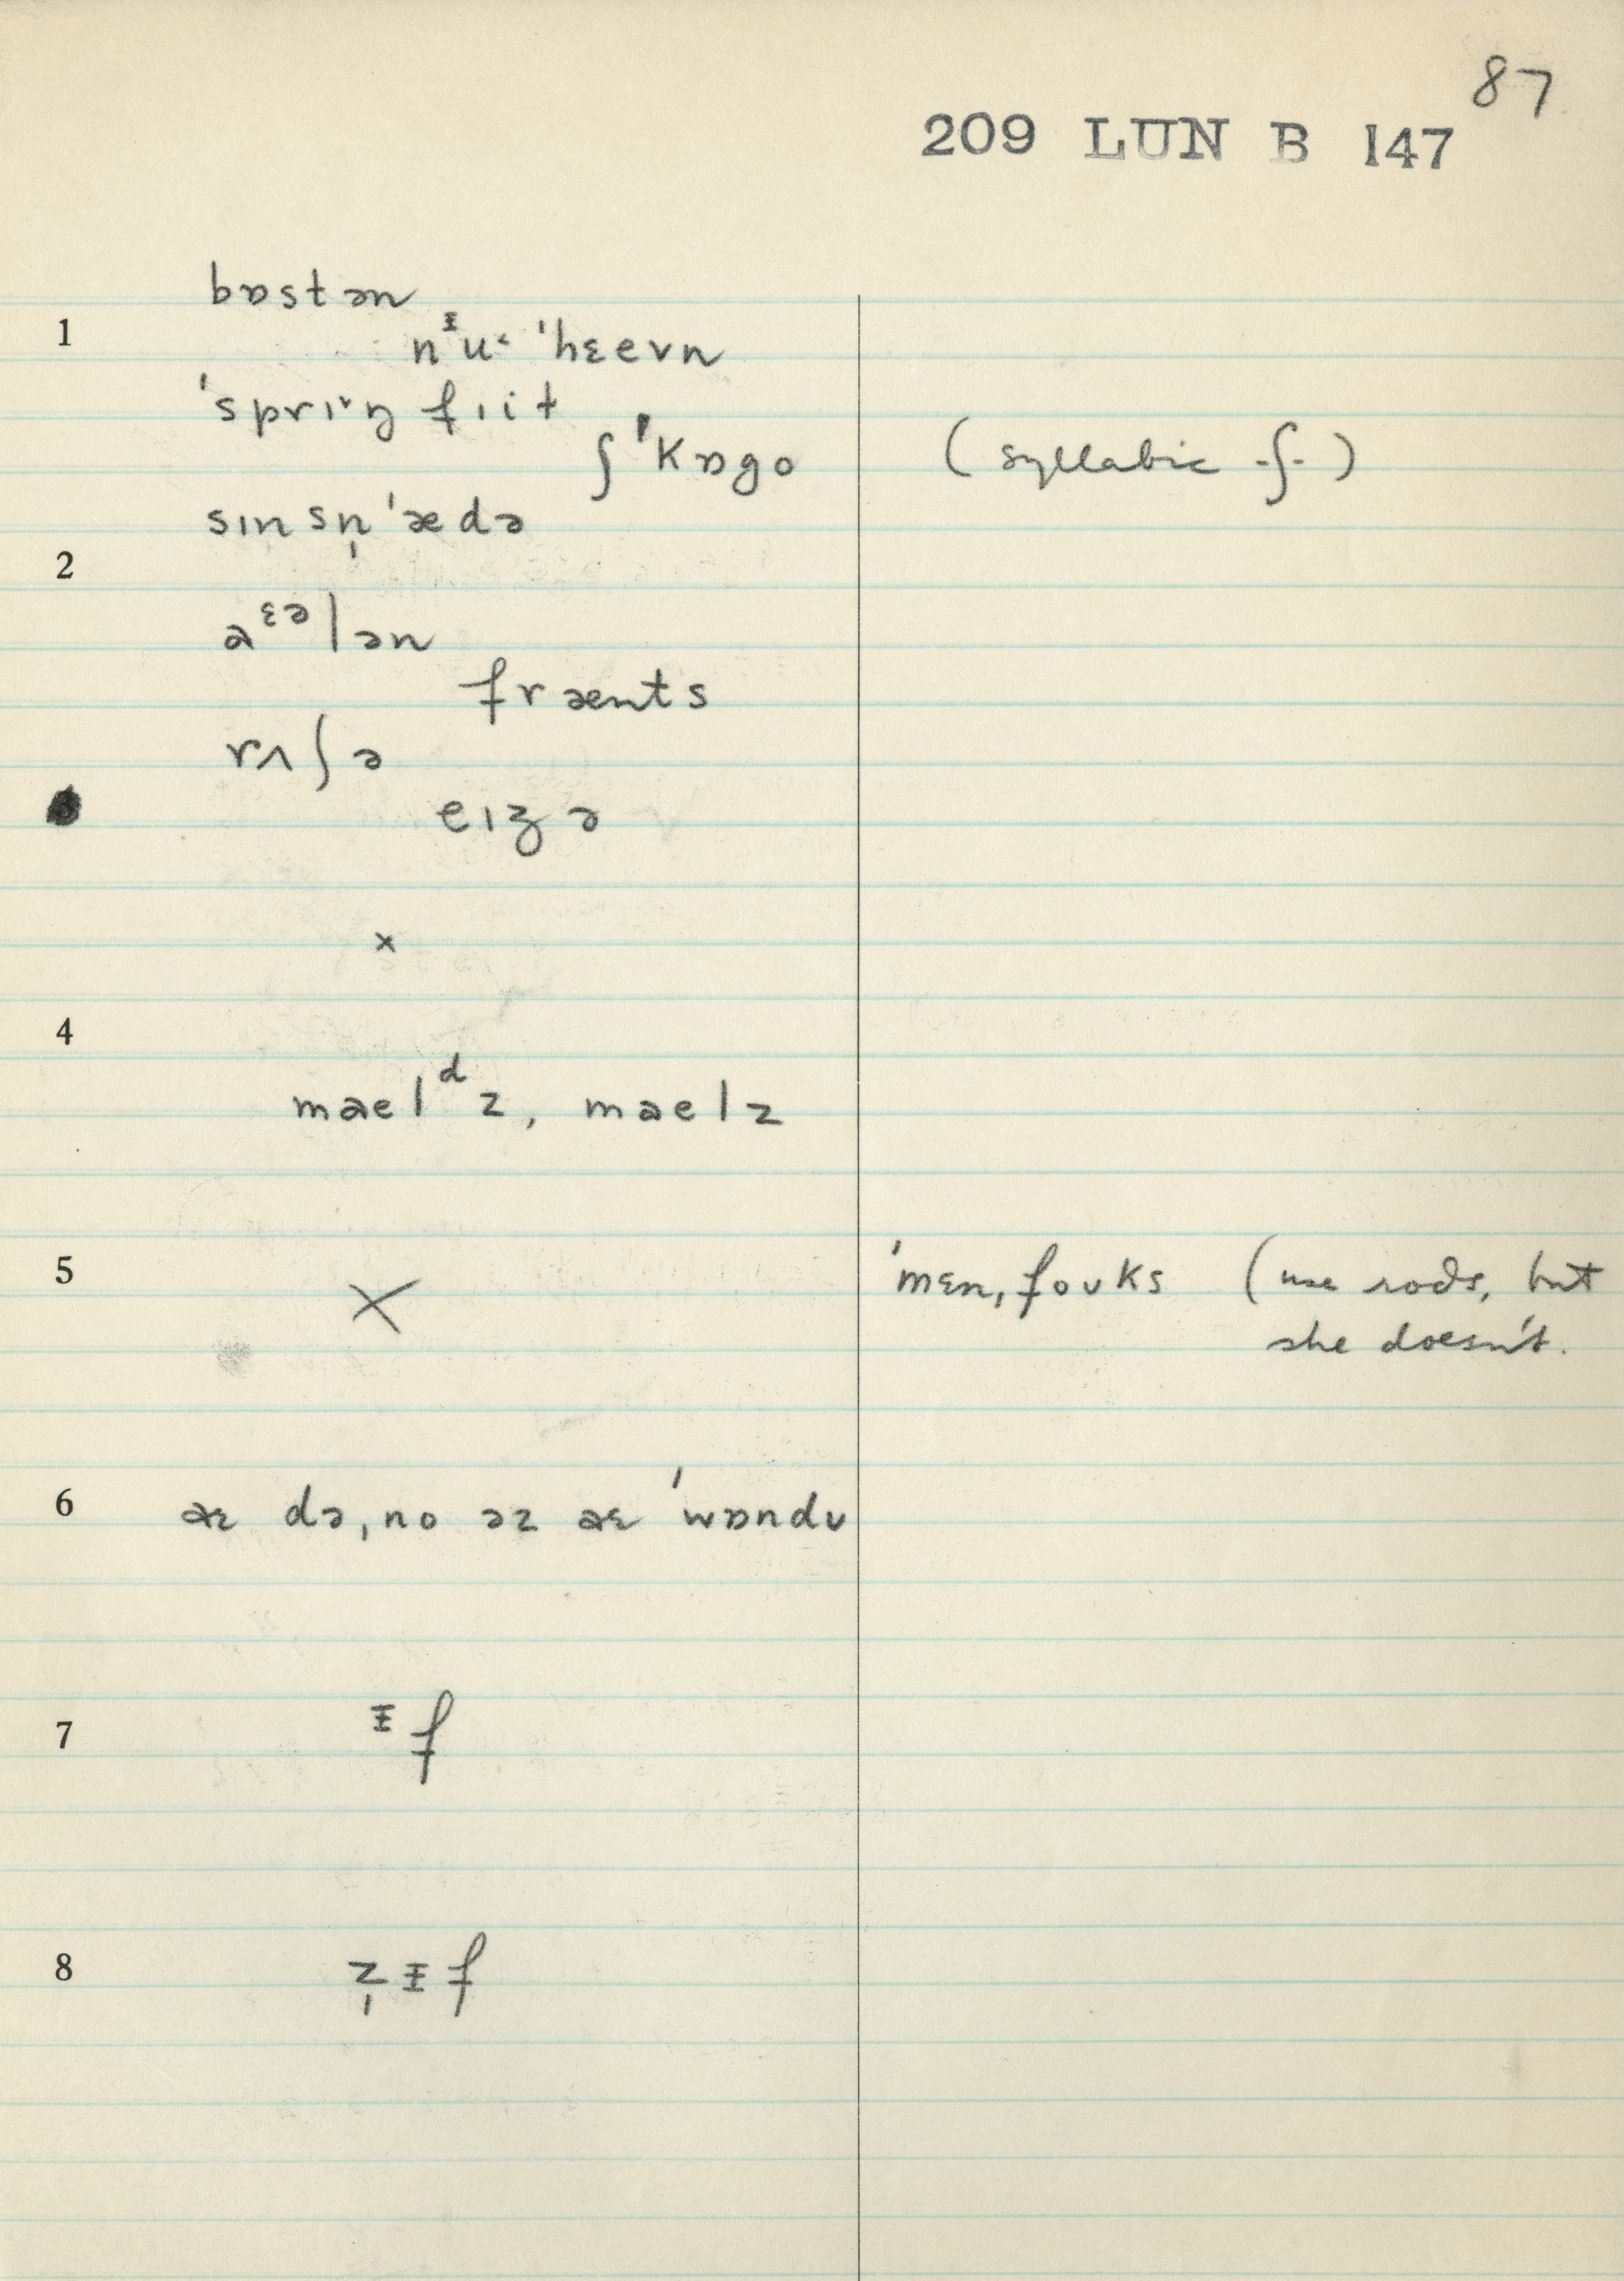 87
209 LUN B 147
bɒstən
1
nᵻu˂ ˈhɛevn
ˈsprɪ˅ŋ fɪit
ʃˈkɒgo (syllabic -ʃ-)
sɪnsn̩ˈædə
2
a^ɛə lən
frænts
rʌʃə
eɪʒə
×
4
maelᵈz, maelz
5 × ˈmɛn, foʊks (use rods, but
she doesn't.
6 aɛ də, no əz aɛ ˈwɒndʊ
7 ᵻf
8 z̩ ᵻf